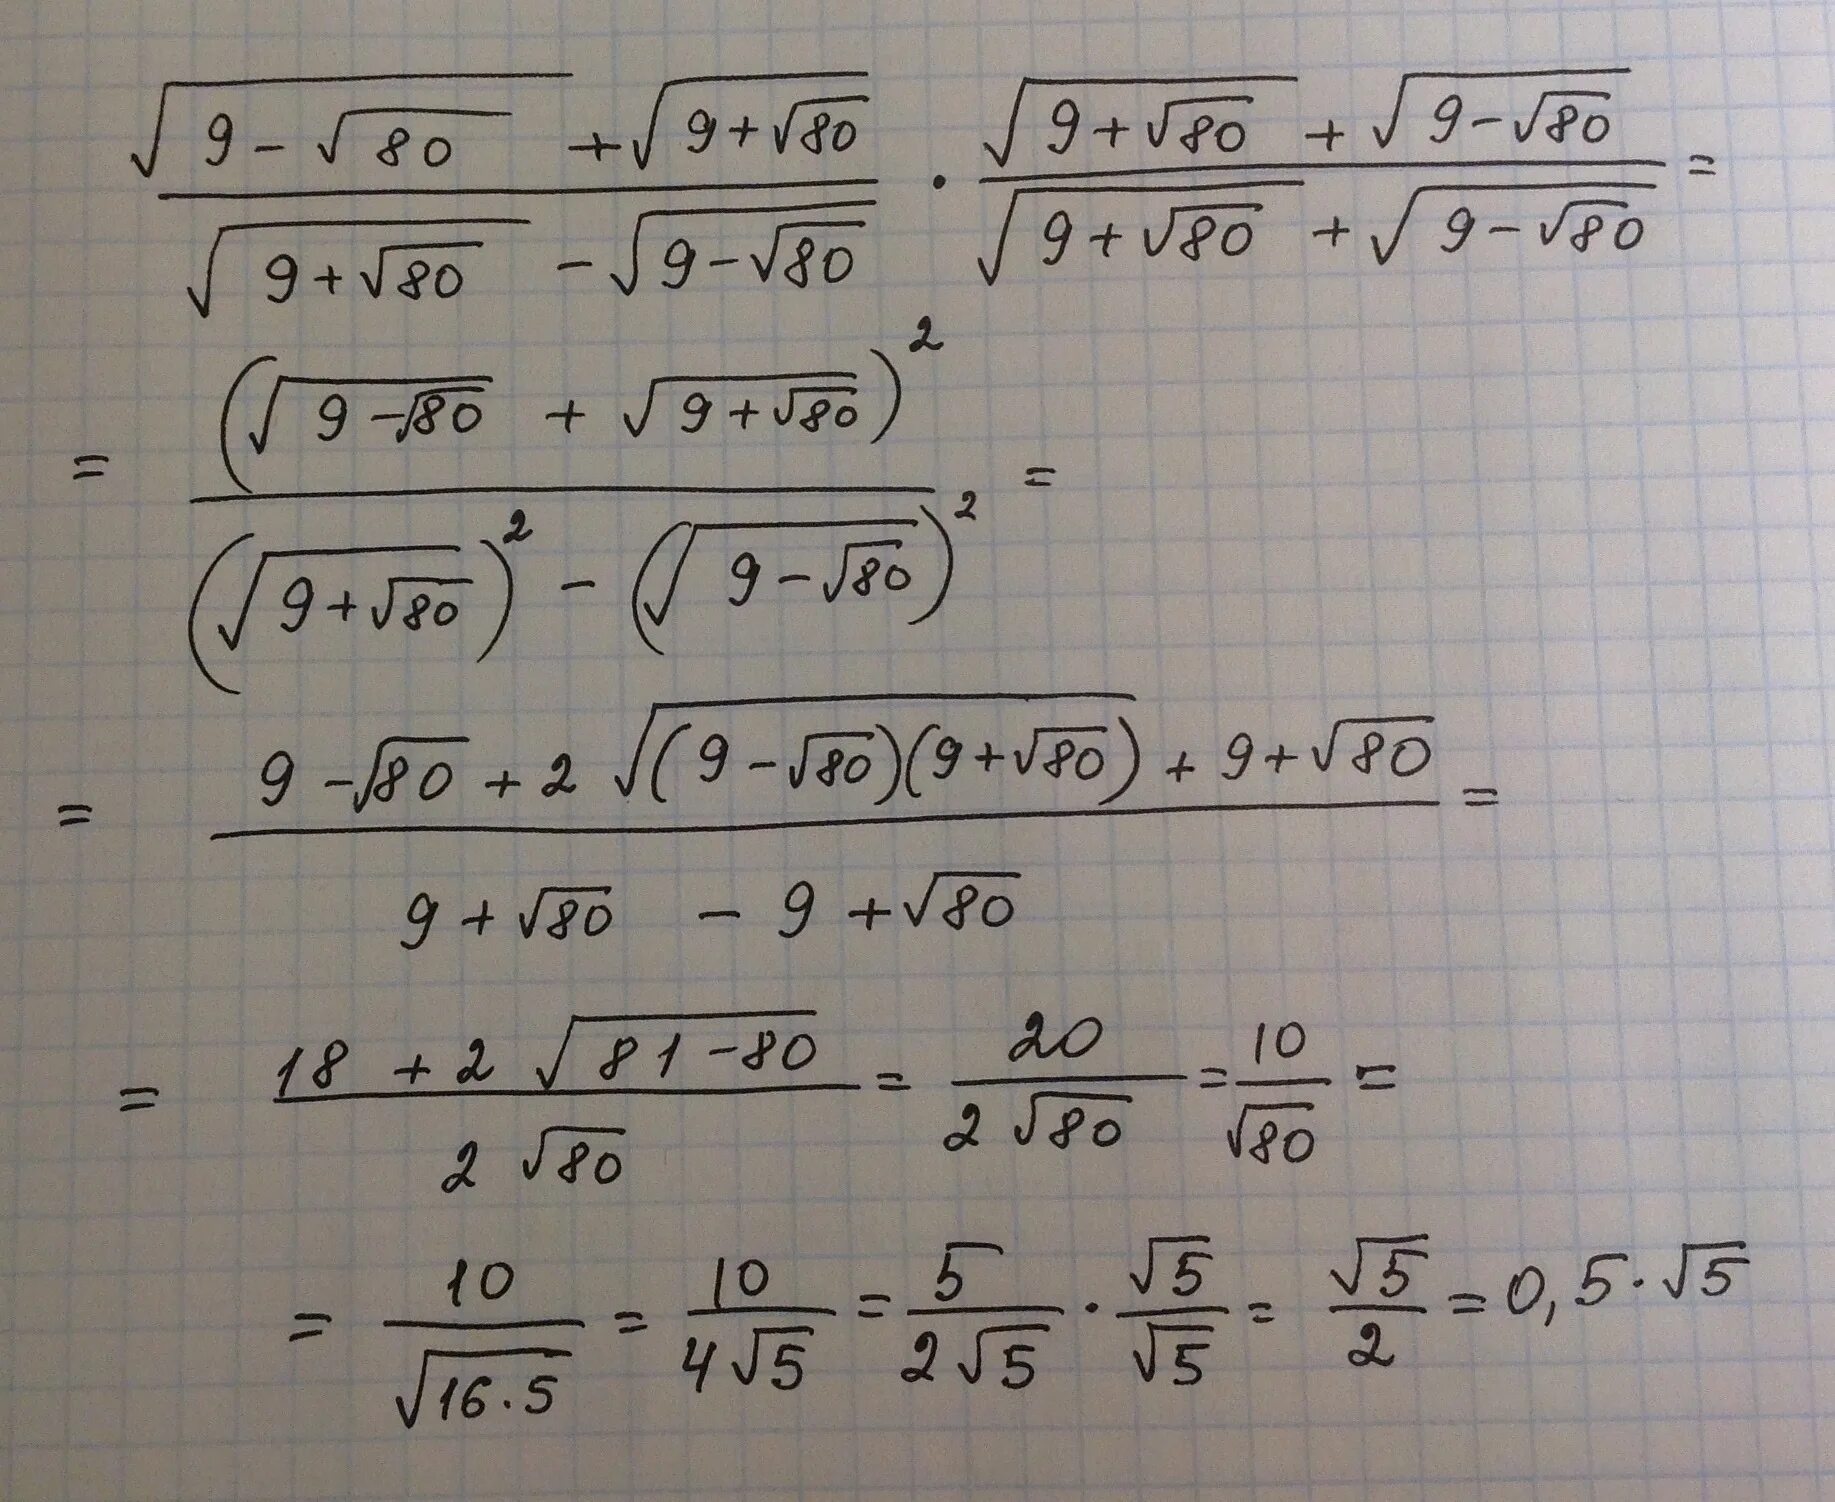 (√(9-√80) + √(9+√80))/(√(9+√80) - √(9-√80)) · (√(9+√80) + √(9-√80))/(√(9+√80) + √(9-√80)) =
= (√(9-√80) + √(9+√80))²/((√(9+√80))² - (√(9-√80))²) =
= (9-√80 + 2√((9-√80)(9+√80)) + 9+√80)/(9+√80 - 9+√80) =
= (18 + 2√(81-80))/(2√80) = 20/(2√80) = 10/√80 =
= 10/√(16·5) = 10/(4√5) = 5/(2√5) · √5/√5 = √5/2 = 0,5·√5